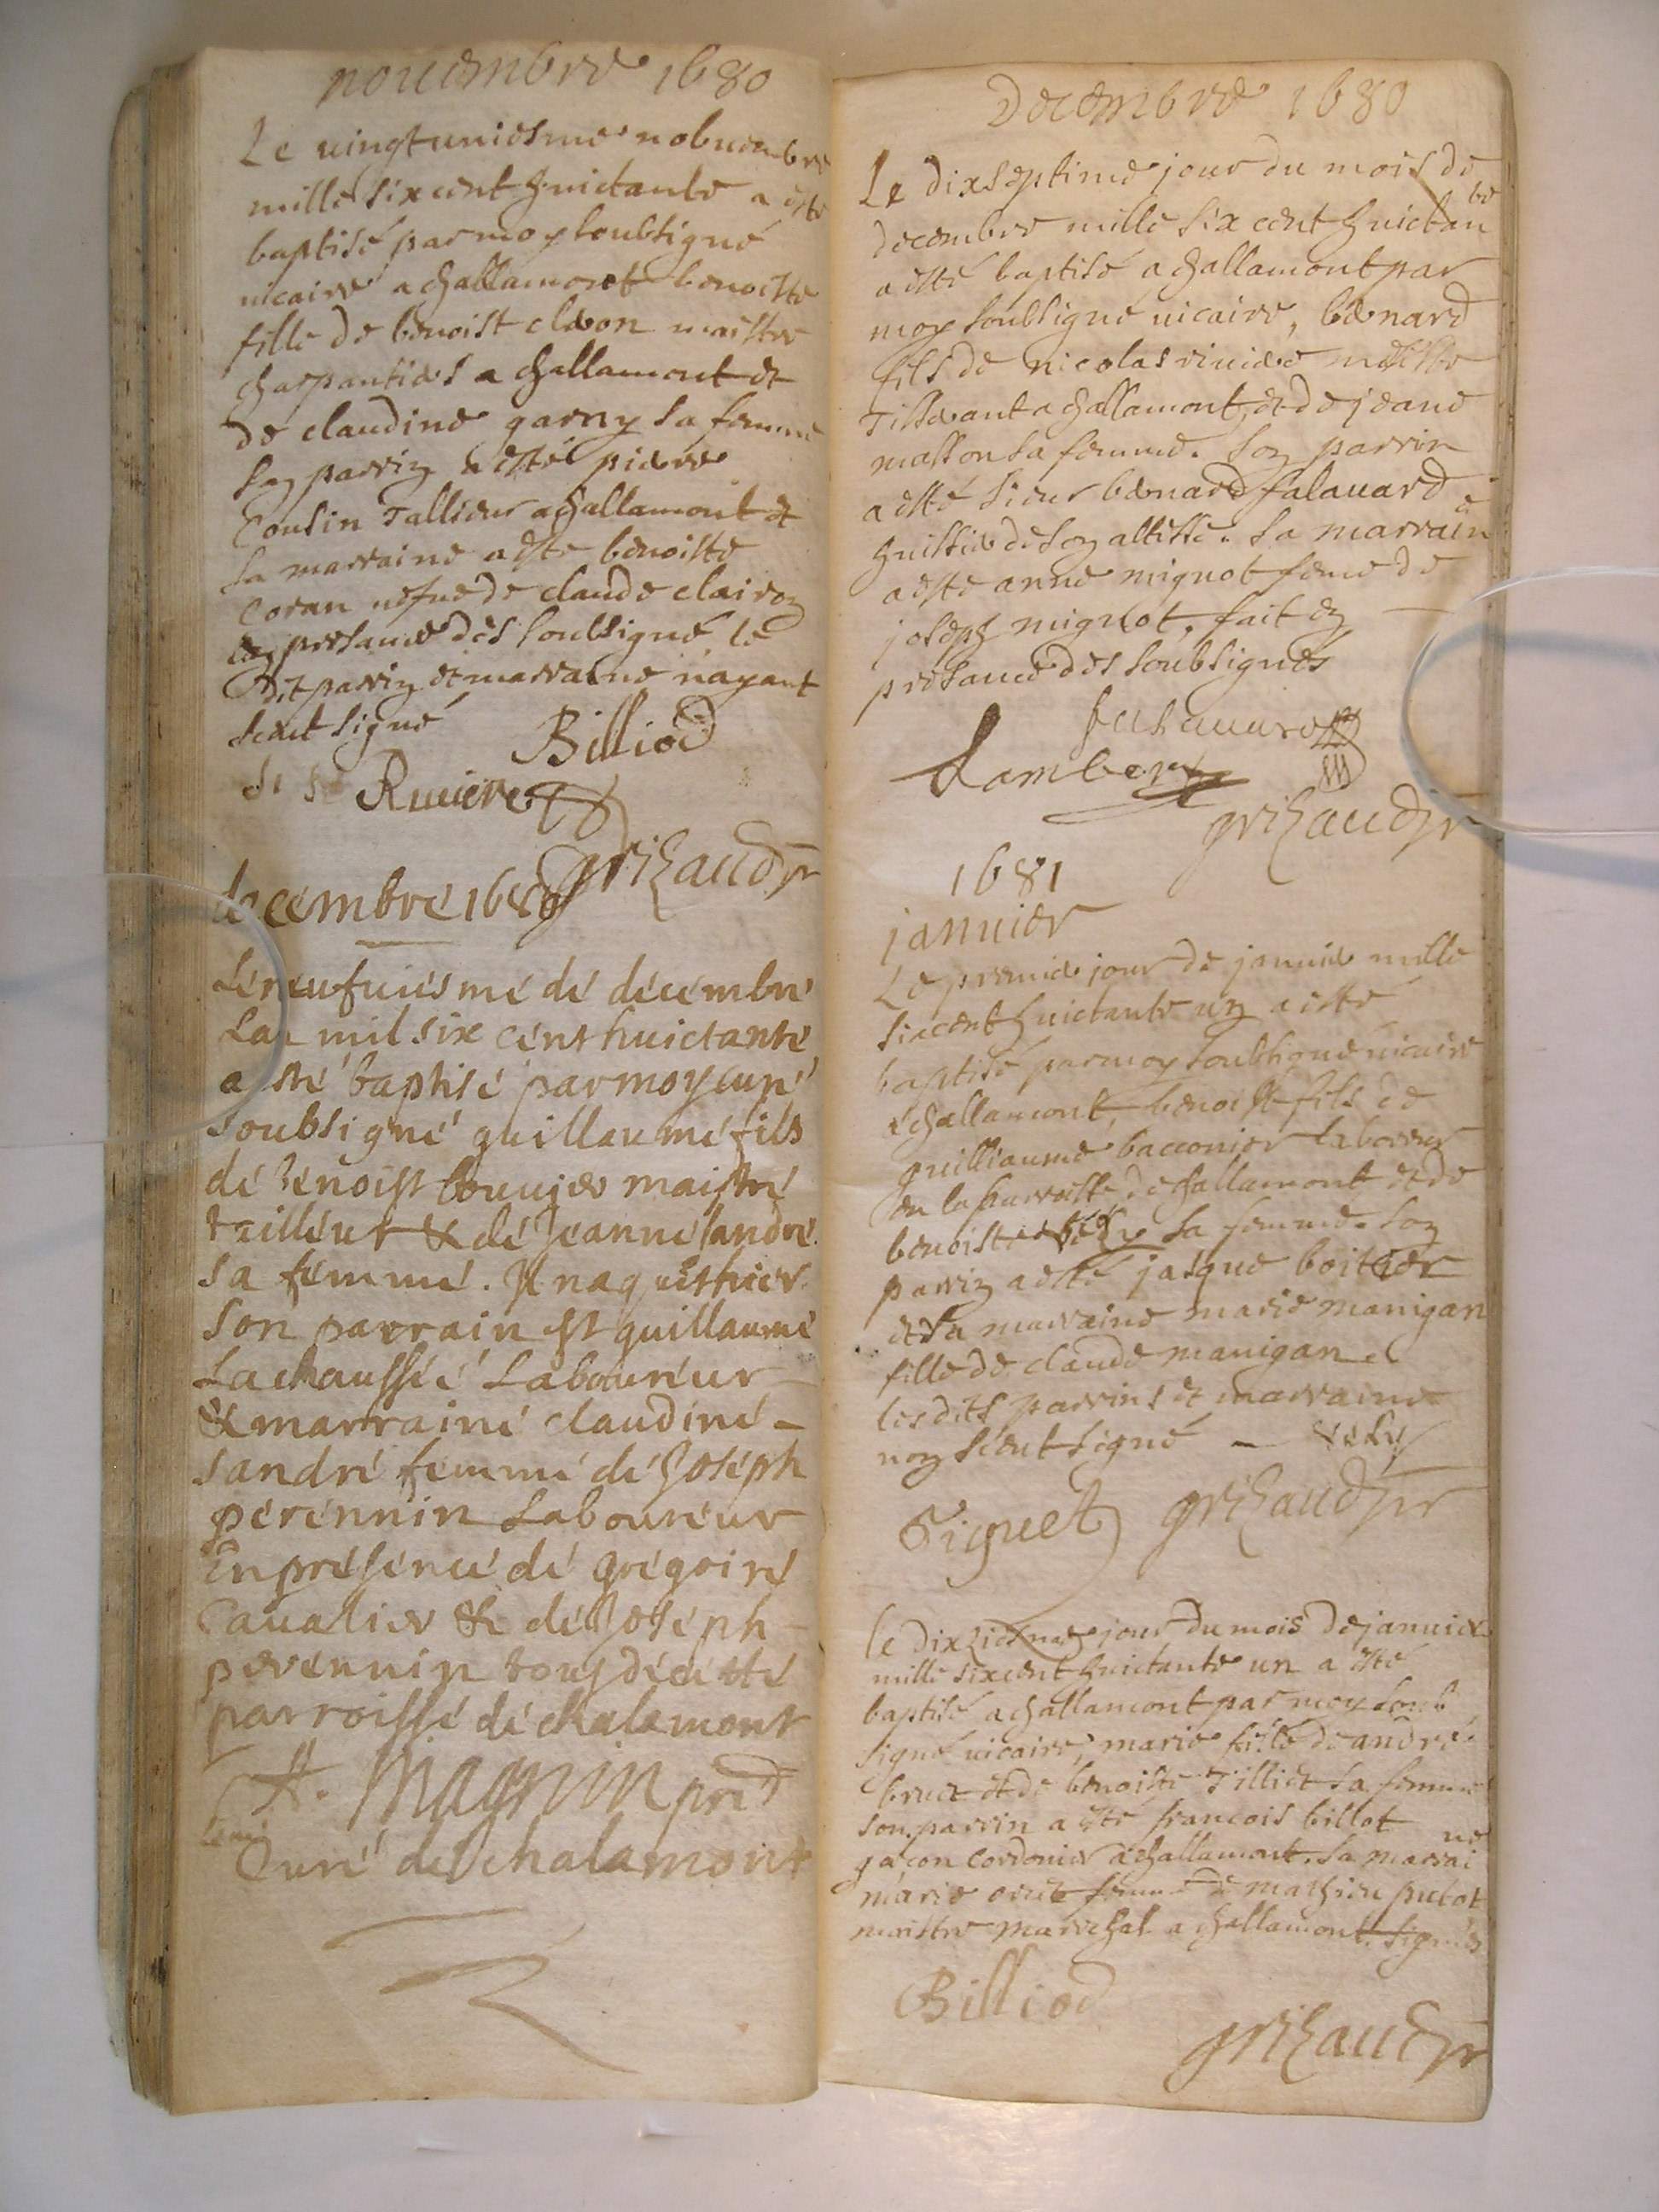 nouembre 1680
Le uingtuniesme nobuembre
mille six cent huictante a este
baptisé par moy soubsigné
uicaire a challamont benoiste
fille de benoist cleron maistre
charpantier a challamont et
de claudine garny sa femme
son parrin a esté pierre
Cousin Tallieur a challamont et
sa marraine a este benoiste
Coran uefue de claude clairon
en presance des soubsigné le
dit parrin et marraine nayant
sceut signé Billiod
Riuiere
grizaud pr
decembré 1680
Lé neufuiésmé dé décémbré
Lan mil six cént huictanté
a esté baptisé par moy curé
soubsigné guillaumé fils
dé benoist bouujer maistré
tailléur & dé Jeanné sandré
sa fémmé. Il naquist hier
Son parrain est guillaumé
Lachaussée Labouréur
& marrainé claudiné
sandré femmé dé Joséph
pérénnin Labouréur
En préséncé dé grégoiré
Caualier & dé Joséph
perénnin tous dé cetté
parroissé dé chalamont
A. Magnin pre
Curé de chalamont
Decembre 1680
Le dixseptime jour du mois de
decembre mille six cent huictante
a esté baptisé a challamont par
moy soubsigné uicaire, bernard
fils de nicolas riuiere maistre
Tisserant a challamont, et de jeane
masson sa femme. Son parrin
a esté sieur bernard falauard
huissier de son altesse. sa marraine
a este anne mignot feme de
joseph mignot, fait en
presance des soubsignes
falauard
Lambert
grizaud pr
1681
januier
Le premier jour de januier mille
sixcent huictante un a esté
baptisé par moy soubsigné uicaire
a challamont, benoist fils de
guilliaume bacconier laboreur
en la parroisse de challamont et de
benoiste sa femme. Son
parrin a esté jasque boitier
et sa marraine marie manigan
fille de claude manigan
lesdits parrins et marraine
non sceut signé
Tignet grizaud pr
le dixziesme jour du mois de januier
mille sixcent huictante un a esté
baptisé a challamont par moy soub
signé uicaire, marie fille de andré
bruet et de benoiste Tilliet sa femme
son parrin a esté francois billot
gacon Cordonier a challamont. sa marraine
marie femme de mathieu putot
maistre marechal a challamont. signés
Billiod
grizaud pr